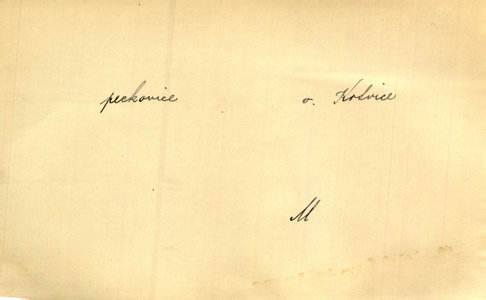 peckovice o. Kotvice
M